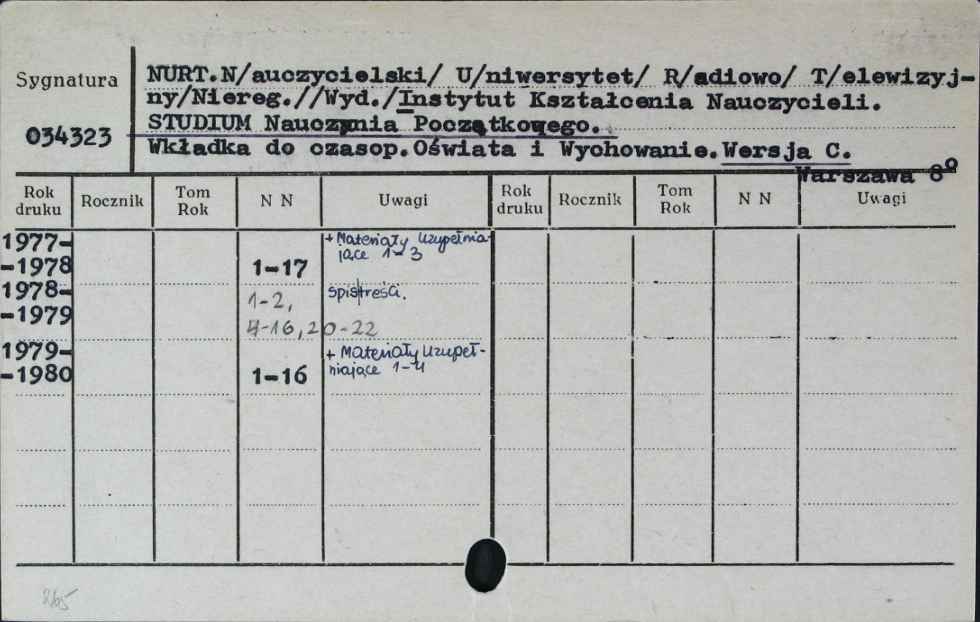 Sygnatura
034323
NURT.N/auczycielski/ U/niwersytet/ R/adiowo/ T/elewizyj-
ny/Niereg.//Wyd./Instytut Kształcenia Nauczycieli.
STUDIUM Nauczania Początkowego.
Wkładka do czasop.Oświata i Wychowanie.Wersja C.
Warszawa 8º
Rok druku Rocznik Tom Rok N N Uwagi Rok druku Rocznik Tom Rok N N Uwagi
1977- + Materiały Uzupełnia-
-1978 1-17 jące 1-3
1978- 1-2, spis treści.
-1979 4-16, 20-22
1979- + Materiały Uzupeł-
-1980 1-16 niające 1-4